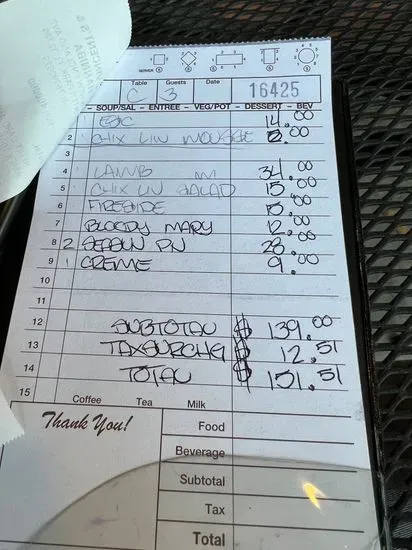 SERVER
Table Guests Date
C 3 16425
- SOUP/SAL - ENTREE - VEG/POT - DESSERT - BEV
1 14.00
2 1 CHIX LIV MOUSSE 8.00
3
4 1 LAMB M 34.00
5 1 CHIX LIV SALAD 15.00
6 1 FIRESIDE 15.00
7 1 BLOODY MARY 12.00
8 2 28.00
9 1 CREME 9.00
10
11
12 SUBTOTAL $ 139.00
13 TAXSURCHG $ 12.51
14 TOTAL $ 151.51
15
Coffee Tea Milk
Thank You!
Food
Beverage
Subtotal
Tax
Total